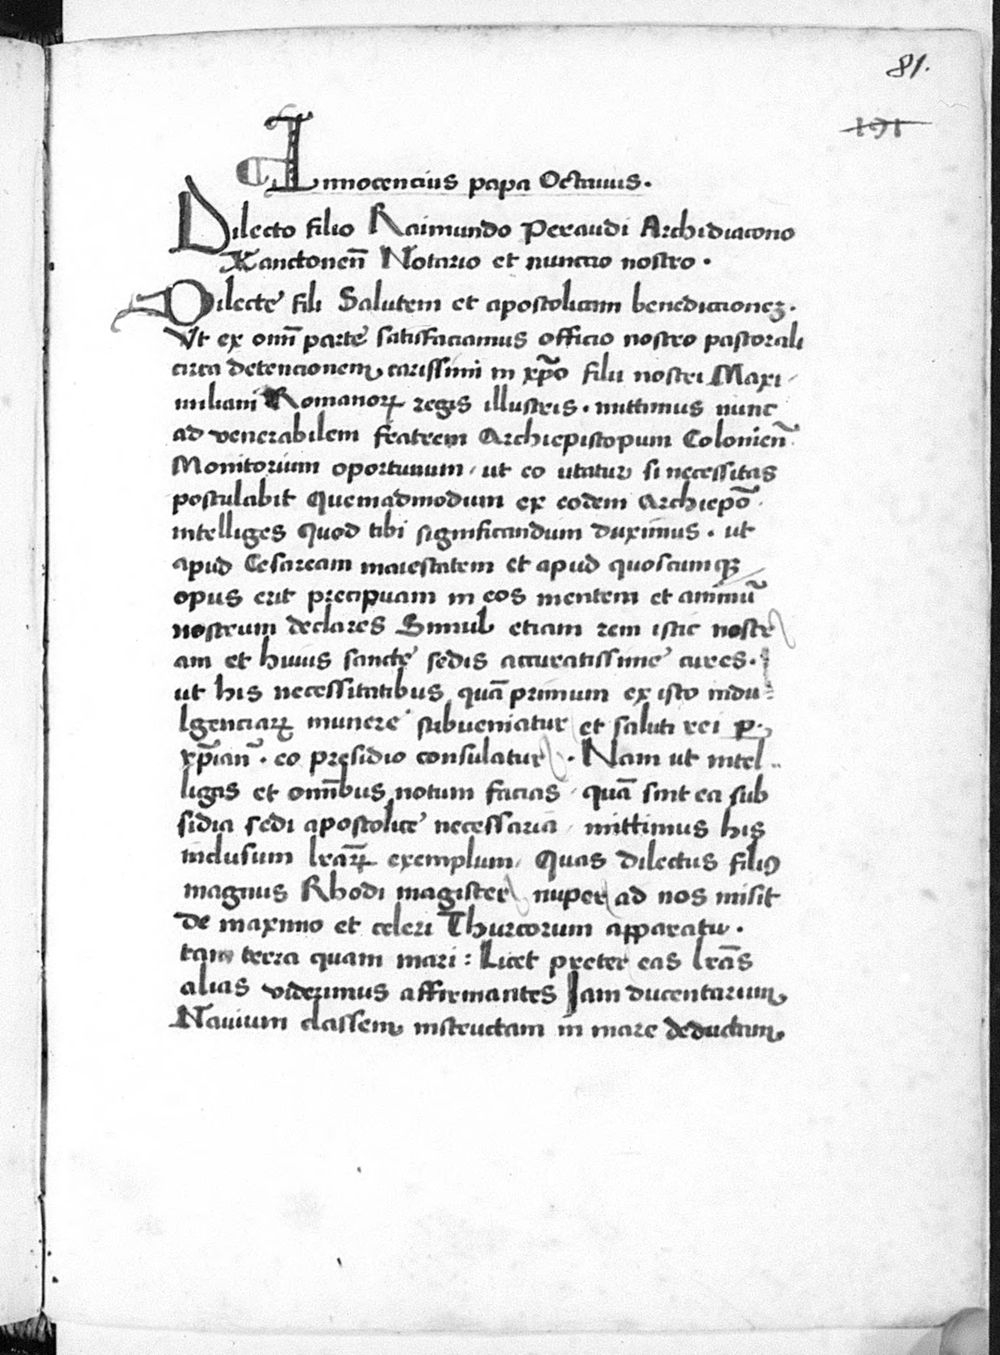 81.
191
Innocencius papa Octauus.
Dilecto filio Raimundo Peraudi Archidiacono
Xanctonen̄ Notario et nuncio nostro.
Dilecte fili Salutem et apostolicam benedictionez.
Vt ex om̄i parte satisfaciamus officio nostro pastorali
circa detencionem carissimi in xp̄o filii nostri Maxi
miliani Romanoꝝ regis illustris. mittimus nunc
ad venerabilem fratrem Archiepiscopum Colonien̄.
Monitorium oportunum, ut eo utatur si necessitas
postulabit Quemadmodum ex eodem Archiep̄o.
intelliges quod tibi significandum duximus. ut
apud Cesaream maiestatem et apud quoscumqꝫ
opus erit precipuam in eos mentem et animū
nostrum declares Simul etiam rem istic nostr
am et huius sancte sedis accuratissime cures.
ut his necessitatibus quā primum ex isto indu
lgenciaꝝ munere subueniatur et saluti rei p.
xp̄ian̄. eo presidio consulatur. Nam ut intel
ligas et om̄ibus notum facias, quā sint ea sub
sidia sedi apostolice necessaria, mittimus his
inclusum lr̄aꝝ exemplum, Quas dilectus filiꝯ
magnus Rhodi magister nuper ad nos misit
de maximo et celeri Thurcorum apparatu.
tam terra quam mari: Licet preter eas lr̄as
alias viderimus affirmantes Iam ducentarum
Nauium classem instructam in mare deductam